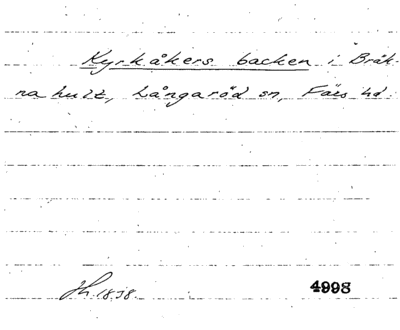 Kyrkåkers backen i Bräk-
na hult, Långaröd sn, Färs hd.
Jh. 1838. 4998